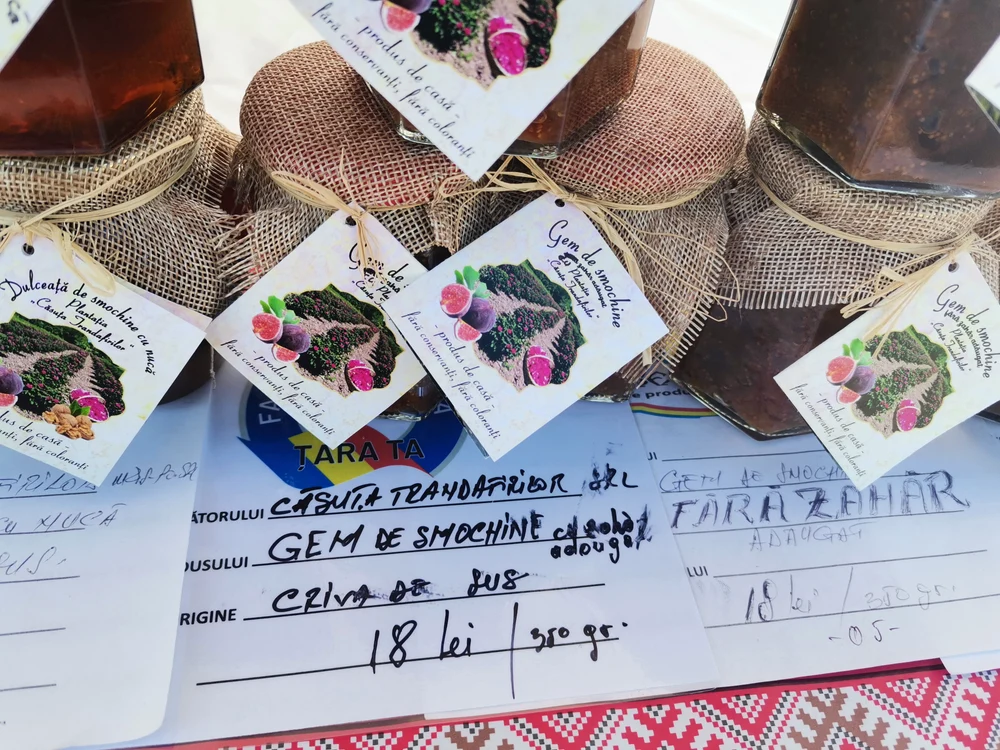 produs de casă -
fără conservanți, fără coloranți
Dulceață de smochine cu nucă
Plantația
"Căsuța Trandafirilor"
- produs de casă -
fără coloranți
Gem de
- produs de casă -
fără conservanți, fără coloranți
Gem de smochine
Plantația
"Căsuța Trandafirilor"
- produs de casă -
fără conservanți, fără coloranți
Gem de smochine
fără zahăr adăugat
Plantația
"Căsuța Trandafirilor"
- produs de casă -
fără conservanți, fără coloranți
CU NUCĂ
ȚARA TA
ĂTORULUI CĂSUȚA TRANDAFIRILOR SRL
DUSULUI GEM DE SMOCHINE cu zahăr
adougat
RIGINE CRIVA DE SUS
18 lei / 350 gr.
e produ
GEM DE SMOCHINE
FĂRĂ ZAHĂR
ADAUGAT
LUI
18 lei / 350 gr.
-05-